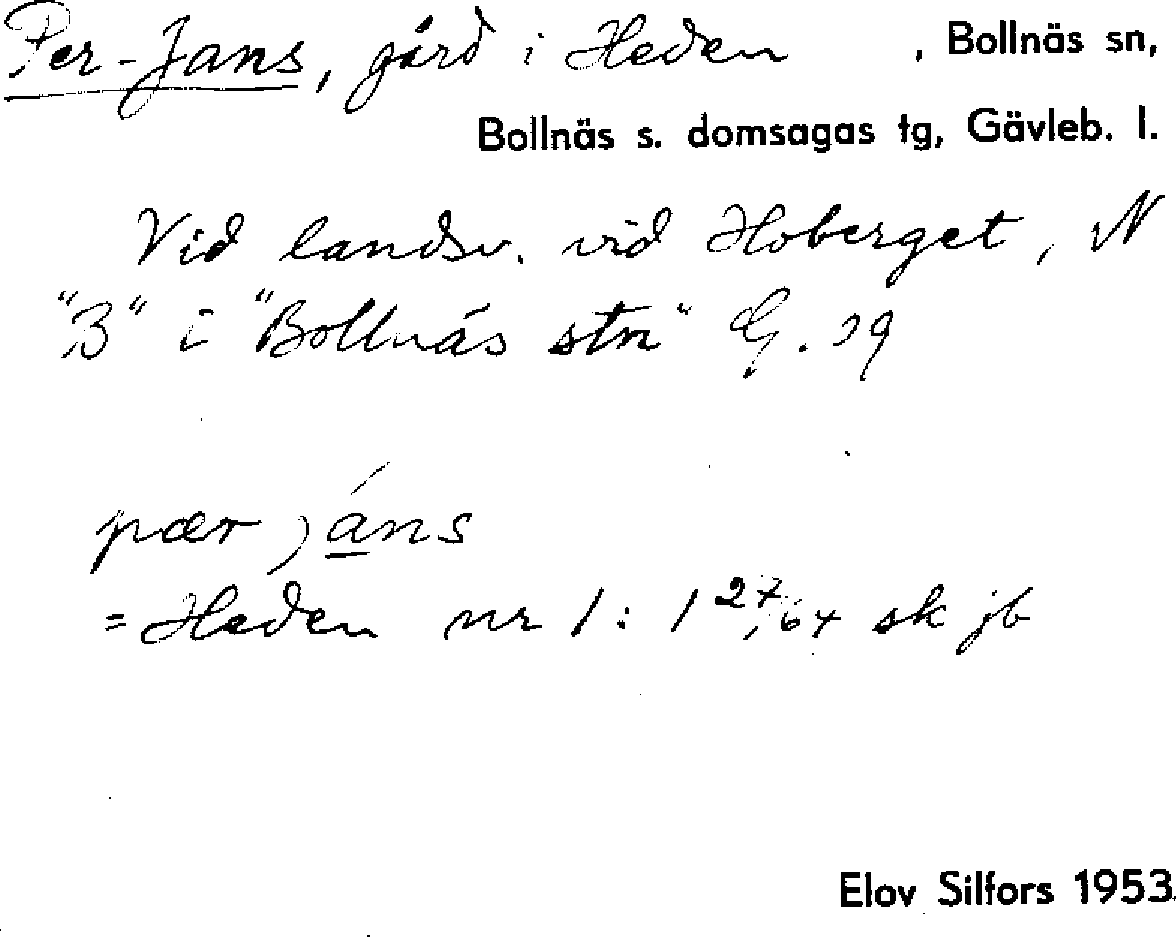 Per-Jans, gård i Heden , Bollnäs sn,
Bollnäs s. domsagas tg, Gävleb. l.
Vid landsv. vid Hoberget, N
"B" i "Bollnäs stn" G. 29
pær jáns
= Heden nr 1:1 27/64 sk jb
Elov Silfors 1953.